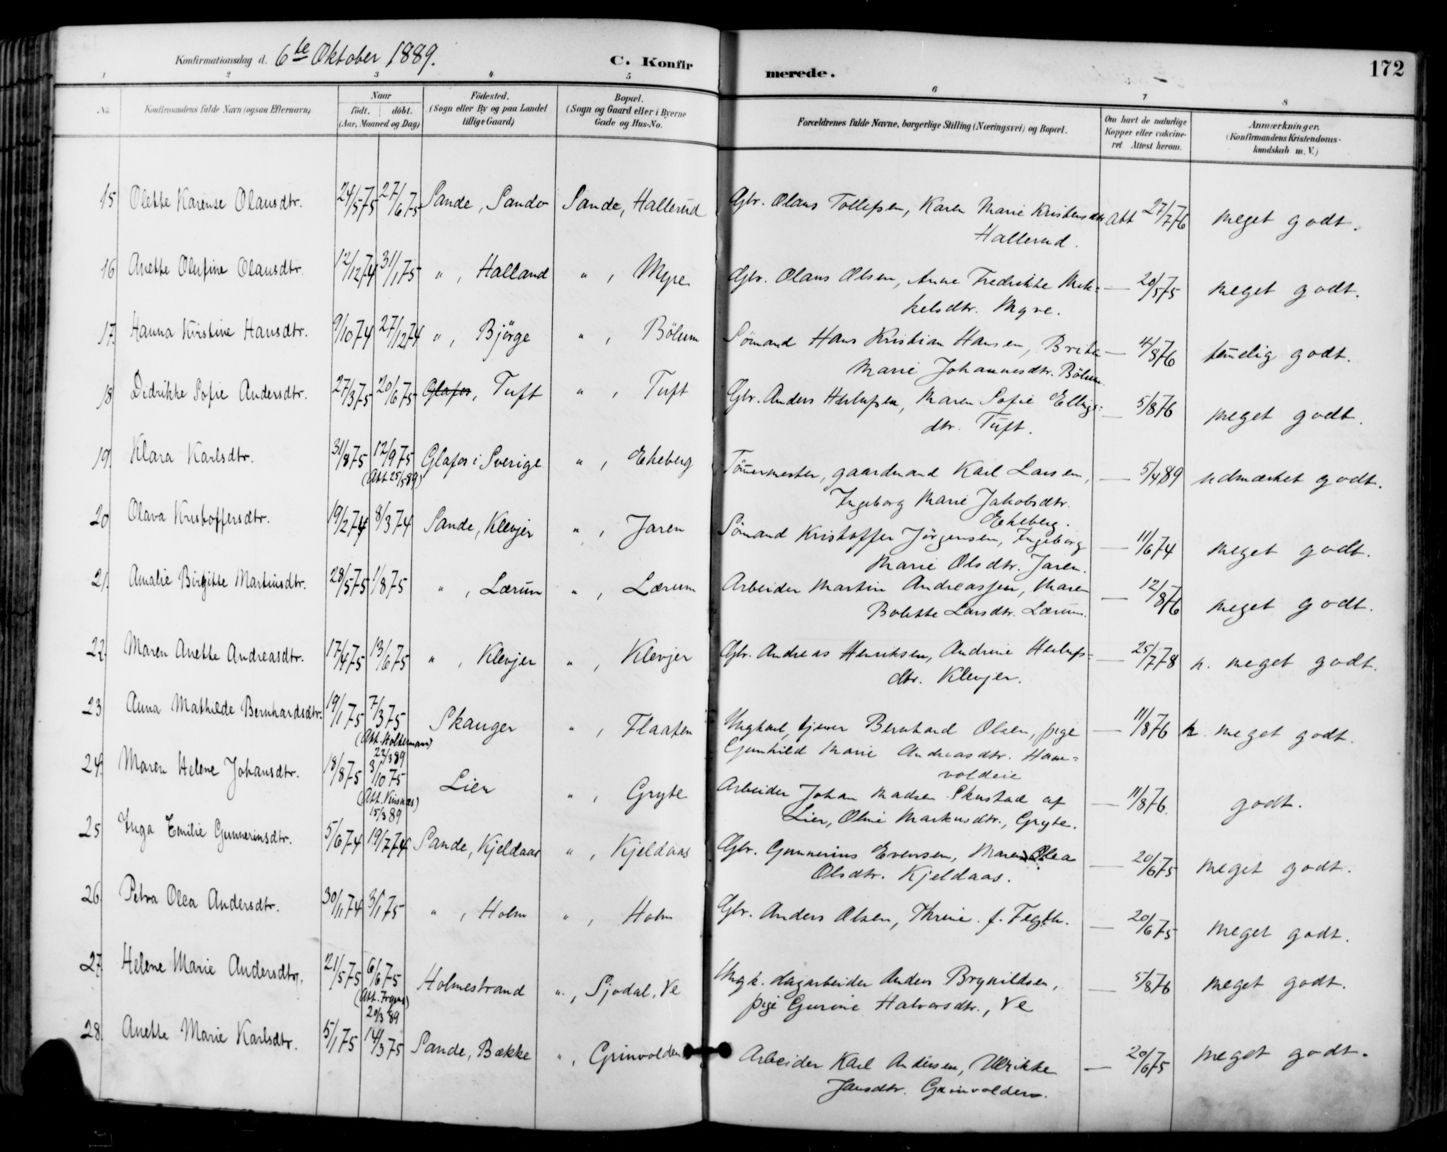 Konfirmationsdag d. 6te Oktober 1889. C. Konfirmerede. 172
1 2 3 4 5 6 7 8
No. Konfirmandens fulde Navn (ogsaa Efternavn) Naar født, døbt. (Aar, Maaned og Dag) Fødested. (Sogn eller By og paa Landet tillige Gaard) Bopæl. (Sogn og Gaard eller i Byerne Gade og Hus-No. Forældrenes fulde Navne, borgerlige Stilling (Næringsvei) og Bopæl. Om havt de naturlige Kopper eller vaccineret Attest herom. Anmærkninger. (Konfirmandens Kristendomskundskab m. V.)
15 Olette Karense Olausdtr. 24/5 75 27/6 75 Sande, Sande Sande, Hallerud Gbr. Olaus Tollefsen, Karen Marie Kristensdtr. Att 27/7 76 meget godt.
Hallerud.
16 Anette Olufine Olausdtr. 12/12 74 31/1 75 " , Halland " , Myre Gbr. Olaus Olsen, Anne Fredrikke Mik- — 20/5 75 meget godt.
kelsdtr. Myre.
17. Hanna Kirstine Hansdtr. 9/10 74 27/12 74 " , Bjørge " , Bølum Sømand Hans Kristian Hansen, Brita — 4/8 76 temelig godt.
Marie Johannesdtr. Bølum.
18 Didrikke Sofie Andersdtr. 27/3 75 20/6 75 Glafos, Tuft " , Tuft Gbr. Anders Herlufsen, Maren Sofie Ellings- — 5/8 76 meget godt.
dtr. Tuft.
19. Klara Karlsdtr. 31/8 75 12/9 75 Glafos i Sverige " , Ekeberg Tømermester, gaardmand Karl Larsen, — 5/4 89 udmærket godt.
(Att 25/5 89) Ingeborg Marie Jakobsdtr.
Ekeberg.
20 Olava Kristoffersdtr. 19/2 74 8/3 74 Sande, Klevjer " , Jaren Sømand Kristoffer Jørgensen, Ingeborg — 11/6 74 meget godt.
Marie Olsdtr. Jaren.
21. Amalie Birgitte Martinsdtr. 28/5 75 1/8 75 " , Lærum " , Lærum Arbeider Martin Andreassen, Maren — 12/8 76 meget godt.
Bolette Larsdtr. Lærum.
22. Maren Anette Andreasdtr. 17/4 75 13/6 75 " , Klevjer " , Klevjer Gbr. Andreas Henriksen, Andrine Herlufs- — 25/7 78 n. meget godt.
dtr. Klevjer.
23 Anna Mathilde Bernhardsdtr. 19/1 75 7/3 75 Skauger " , Flaaten Ungkarl, tjener Bernhard Olsen, pige — 11/8 76 n. meget godt.
(Att. Holtermann) 22/3 89 Gunhild Marie Andreasdtr.
24. Maren Helene Johansdtr. 18/8 75 3/10 75 Lier " , Gryte Arbeider Johan Madsen Skustad af — 11/8 76. godt.
15/3 89 Lier, Oline Markusdtr., Gryte.
25 Inga Emilie Gunnerinsdtr. 5/6 74 19/7 74 Sande, Kjeldaas " , Kjeldaas Gbr. Gunnerius Evensen, Maren Olea — 20/6 75 meget godt.
Olsdtr. Kjeldaas.
26. Petra Olea Andersdtr. 30/11 74 3/1 75 " , Holm " , Holm Gbr. Anders Olsen, Thrine f. Flygth. — 20/6 75 meget godt.
27. Helene Marie Andersdtr. 21/5 75 6/6 75 Holmestrand " , Sjødal, Ve Ungk. dagarbeider Anders Brynildsen, — 5/8 76 meget godt.
20/3 89 pige Gurine Halvorsdtr., Ve
28. Anette Marie Karlsdtr. 5/1 75 14/3 75 Sande, Bække " , Grinvolden Arbeider Karl Andersen, Ulrikke — 20/6 75 meget godt.
Jansdtr. Grinvolden.